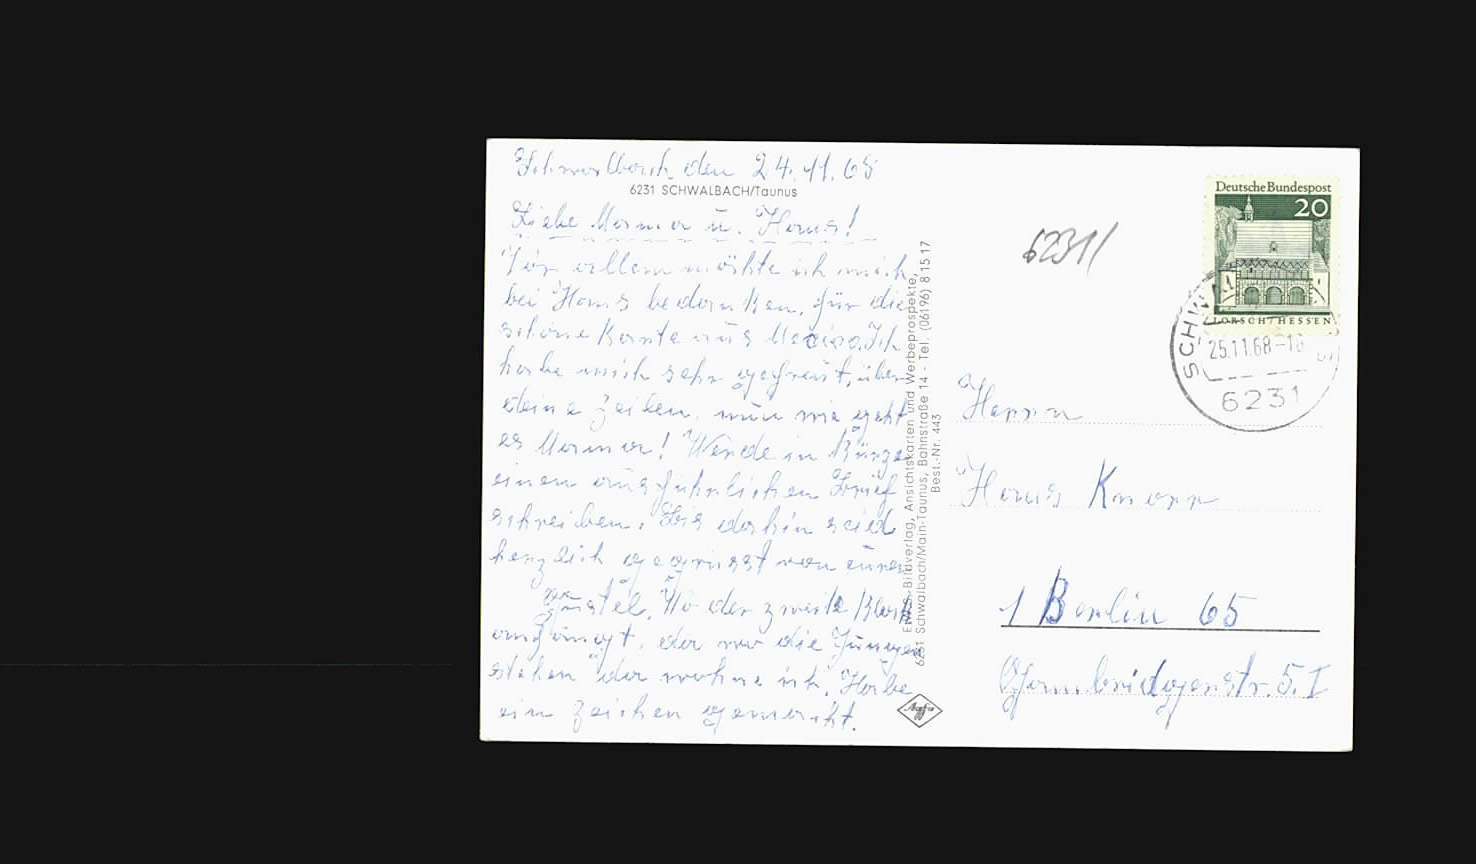 Schwalbach den 24.11.68
6231 SCHWALBACH/Taunus
Liebe Mama u. Hans!
Vor allem möchte ich mich
bei Hans bedanken, für die
schöne Karte aus Mexico. Ich
habe mich sehr gefreut, über
deine Zeilen. nun wie geht
es Mama! Werde in Kürze
einen ausführlichen Brief
schreiben. Bis dahin seid
herzlich gegrüsst von eurer
Gustel. Wo der zweite Block
anfängt, da wo die Jungen
stehen da wohne ich. Habe
ein zeichen gemacht.
Bildverlag, Ansichtskarten und Werbeprospekte,
6231 Schwalbach/Main-Taunus, Bahnstraße 14 - Tel. (06196) 81517
Best.-Nr. 443
Agfa
6231/
Deutsche Bundespost
20
LORSCH/HESSEN
SCHWAL
25.11.68-18
6231
Herrn
Hans Knorr
1 Berlin 65
5. I